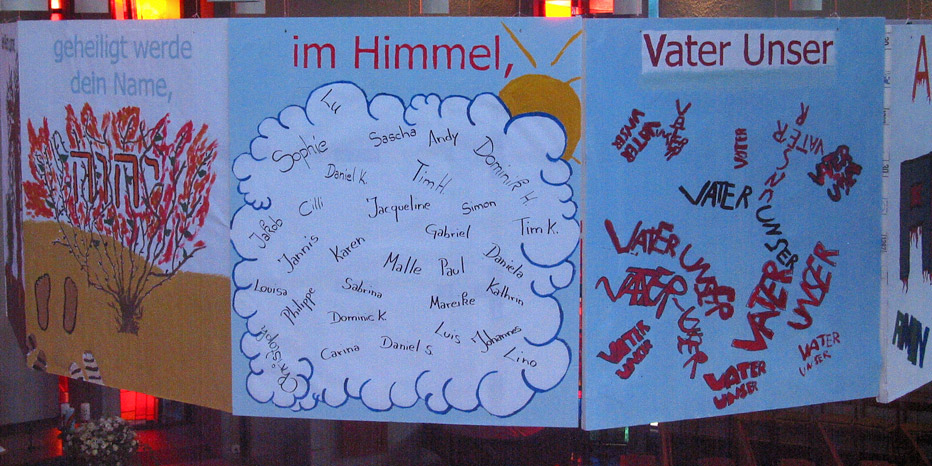 geheiligt werde
dein Name,
יהוה
im Himmel,
Lu
Sophie
Sascha
Andy
Dominik H.
Daniel K.
Tim H.
Jakob
Cilli
Jacqueline
Simon
Jannis
Karen
Gabriel
Tim K.
Malle
Paul
Daniela
Louisa
Philippe
Sabrina
Mareike
Kathrin
Dominic K.
Christoph
Carina
Daniel S.
Luis
Johannes
Lino
Vater Unser
VATER
UNSER
VATER
VATER
UNSER
VATER
UNSER
VATER UNSER
VATER UNSER
VATER
UNSER
VATER
UNSER
VATER
UNSER
VATER
UNSER
A